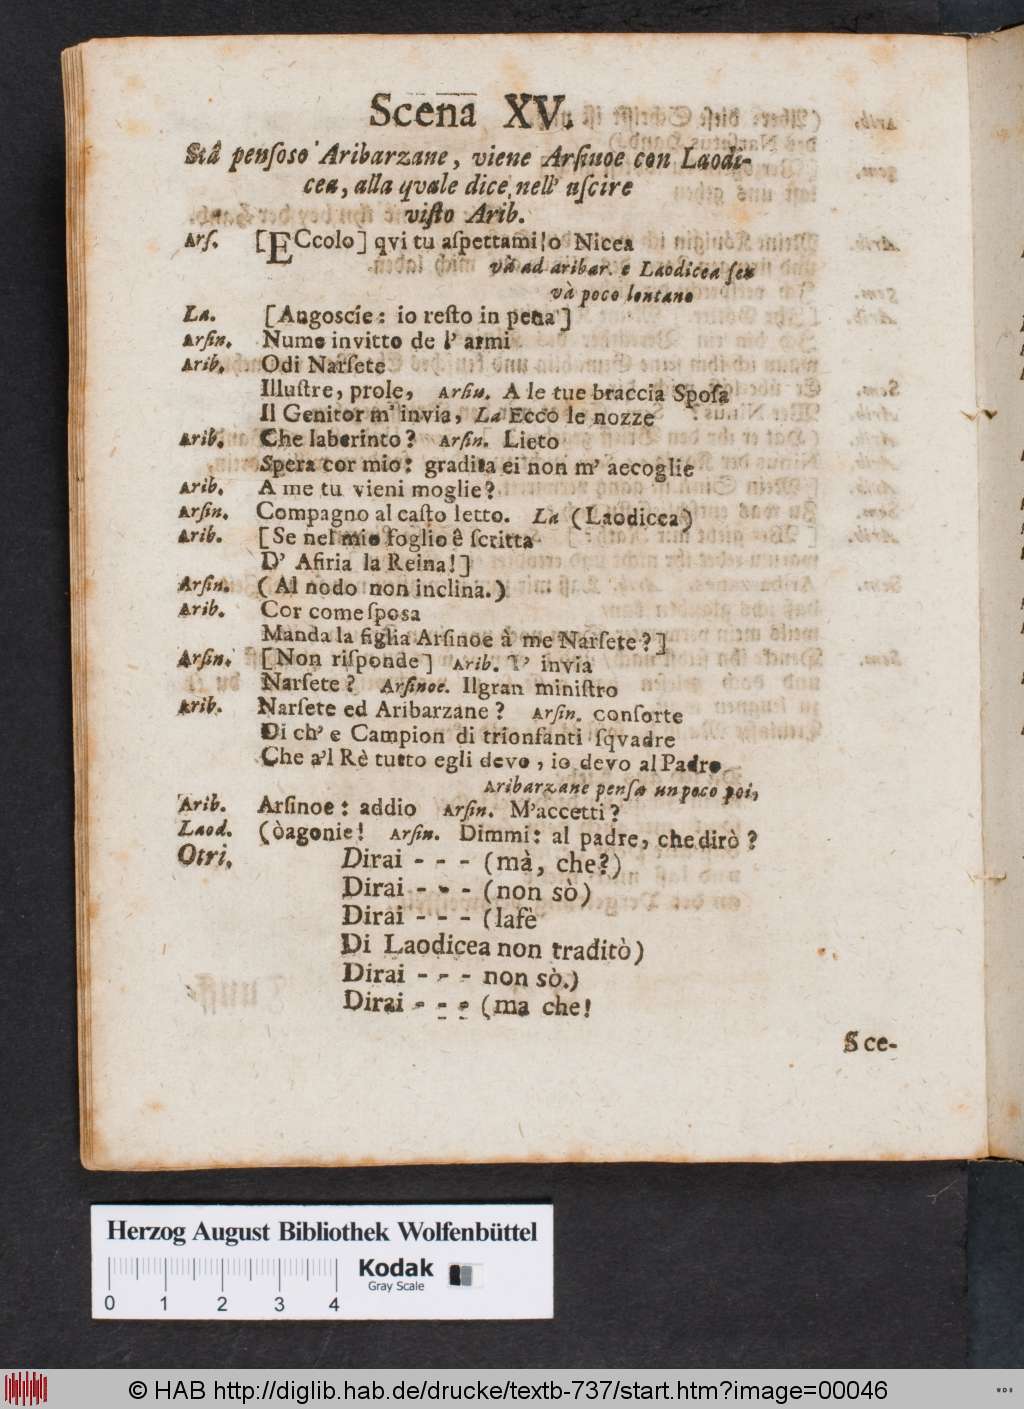 Scena XV.
Stâ penſoso Aribarzane, viene Arſinoe con Laodi-
cea, alla qvale dice nell' uſcire
viſto Arib.
Arſ. [ECcolo] qvi tu aſpettami: o Nicea
và ad aribar. e Laodicea ſen
và poco lontano
La. [Angoscie: io reſto in pena]
Arſin. Nume invitto de l' armi
Arib. Odi Narſete
Illuſtre, prole, Arſin. A le tue braccia Spoſa
Il Genitor m' invia, La Ecco le nozze
Arib. Che laberinto? Arſin. Lieto
Spera cor mio: gradita ei non m' aecoglie
Arib. A me tu vieni moglie?
Arſin. Compagno al caſto letto. La (Laodicea)
Arib. [Se nel mio foglio ê ſcritta
D' Aſiria la Reina!]
Arſin. (Al nodo non inclina.)
Arib. Cor come ſposa
Manda la figlia Arſinoe â me Narſete?]
Arſin. [Non riſponde] Arib. T' invia
Narſete? Arſinoe. Ilgran miniſtro
Arib. Narſete ed Aribarzane? Arſin. conſorte
Di ch' e Campion di trionfanti ſqvadre
Che a'l Rè tutto egli devo, io devo al Padre
Aribarzane penſa un poco poi,
Arib. Arſinoe: addio Arſin. M'accetti?
Laod. (òagonie! Arſin. Dimmi: al padre, che dirò?
Otri. Dirai - - - (mà, che?)
Dirai - - - (non sò)
Dirai - - - (lafè
Di Laodicea non traditò)
Dirai - - - non sò.)
Dirai - - - (ma che!
Sce-
Herzog August Bibliothek Wolfenbüttel
0 1 2 3 4
Kodak
Gray Scale
© HAB http://diglib.hab.de/drucke/textb-737/start.htm?image=00046